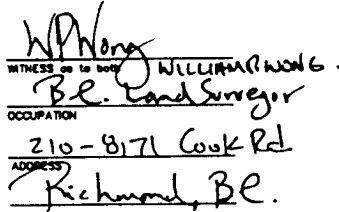 WPWong
WITNESS as to both WILLIAM P. WONG.
B.C. Land Surveyor
OCCUPATION
210-8171 Cook Rd
ADDRESS
Richmond, BC.